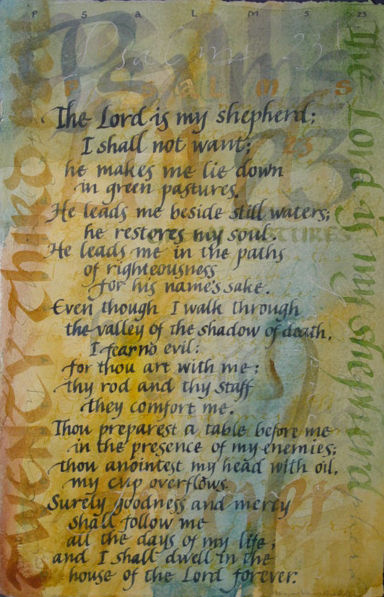 PSALMS 23
Psalms 23
Psalms
Psalms
23
The Lord is my shepherd;
I shall not want;
he makes me lie down
in green pastures.
He leads me beside still waters;
he restores my soul.
He leads me in the paths
of righteousness
for his name's sake.
Even though I walk through
the valley of the shadow of death,
I fear no evil:
for thou art with me;
thy rod and thy staff
they comfort me.
Thou preparest a table before me
in the presence of my enemies;
thou anointest my head with oil,
my cup overflows.
Surely goodness and mercy
shall follow me
all the days of my life;
and I shall dwell in the
house of the Lord forever.
The Lord is my shepherd
Twenty Third